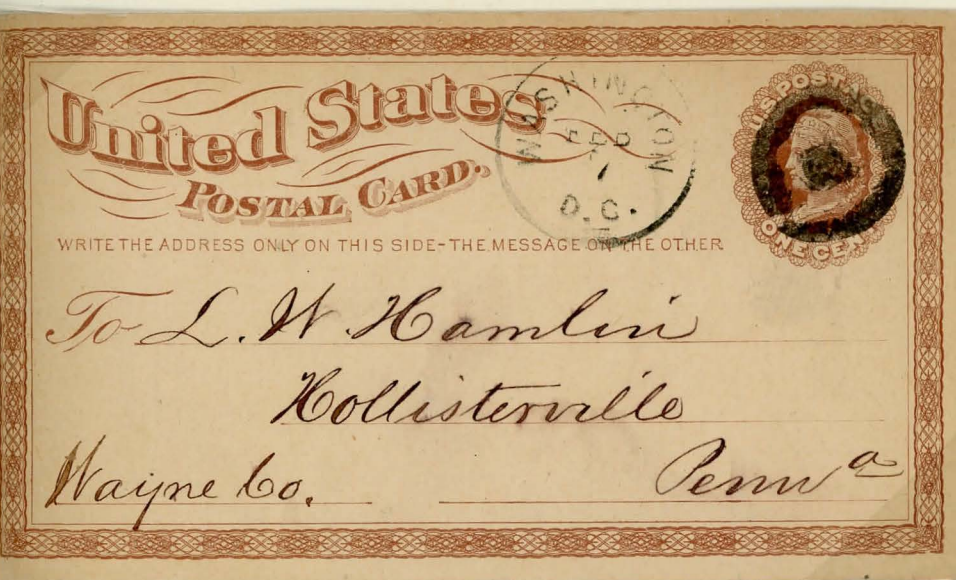 United States
POSTAL CARD.
WASHINGTON
FEB
1
D.C.
U.S. POSTAGE
ONE CENT
WRITE THE ADDRESS ONLY ON THIS SIDE-THE MESSAGE ON THE OTHER
To L. W. Hamlin
Hollisterville
Wayne Co. Penn a